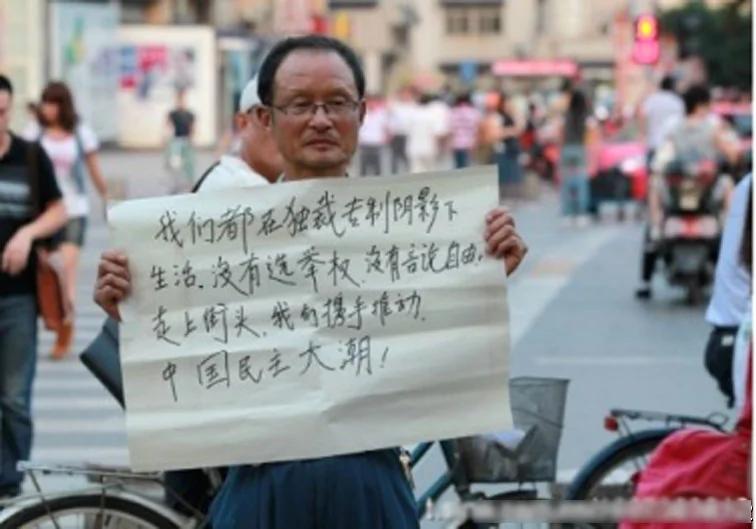 我们都在独裁专制阴影下
生活.没有选举权.没有言说自由.
走上街头.我们携手推动.
中国民主大潮!